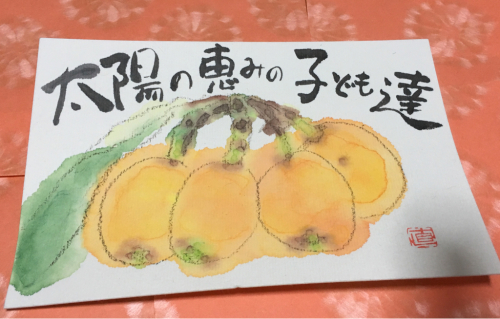 太陽の恵みの子ども達